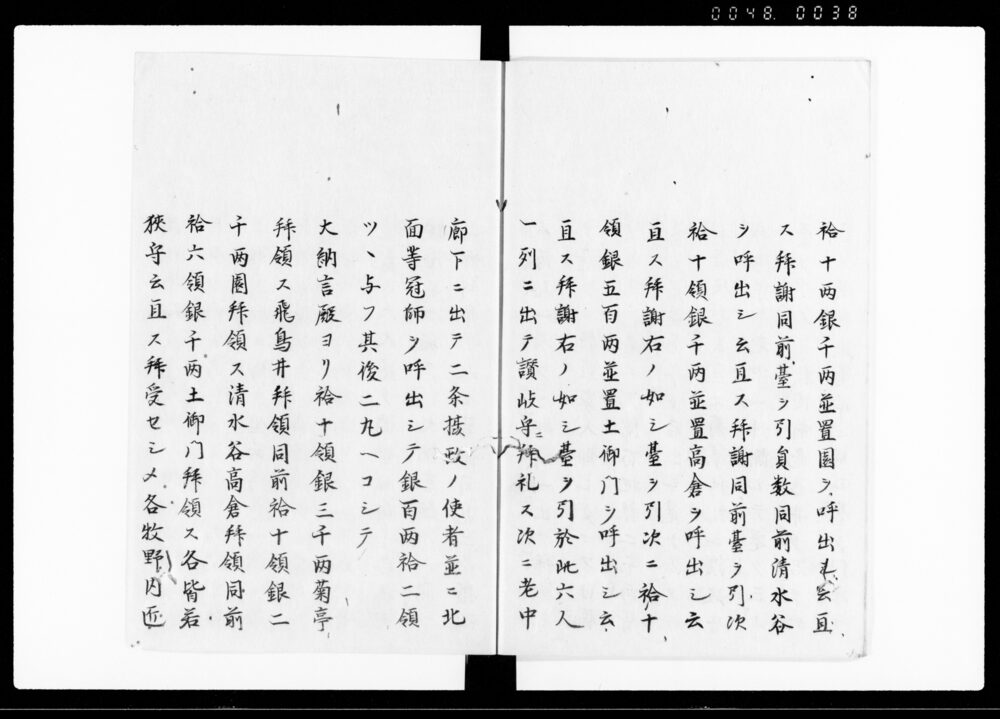 0048. 0038
袷十両銀千両並置園ヲ呼出シ云亘
ス拜謝同前臺ヲ引負数同前清水谷
ヲ呼出シ云亘ス拜謝同前臺ヲ引次
袷十領銀千両並置高倉ヲ呼出シ云
亘ス拜謝右ノ如シ臺ヲ引次ニ袷十
領銀五百両並置土御门ヲ呼出シ云
亘ス拜謝右ノ如シ臺ヲ引於此六人
一列ニ出テ讃岐守拜礼ス次ニ老中
廊下ニ出テ二条摂政ノ使者並ニ北
面等冠師ヲ呼出シテ銀百両袷二領
ツヽ与フ其後二九ヘコシテ
大納言殿ヨリ袷十領銀三千両菊亭
拜領ス飛鳥井拜領同前袷十領銀二
千両園拜領ス清水谷高倉拜領同前
袷六領銀千両土御门拜領ス各皆若
狭守云亘ス拜受セシメ各牧野内匠